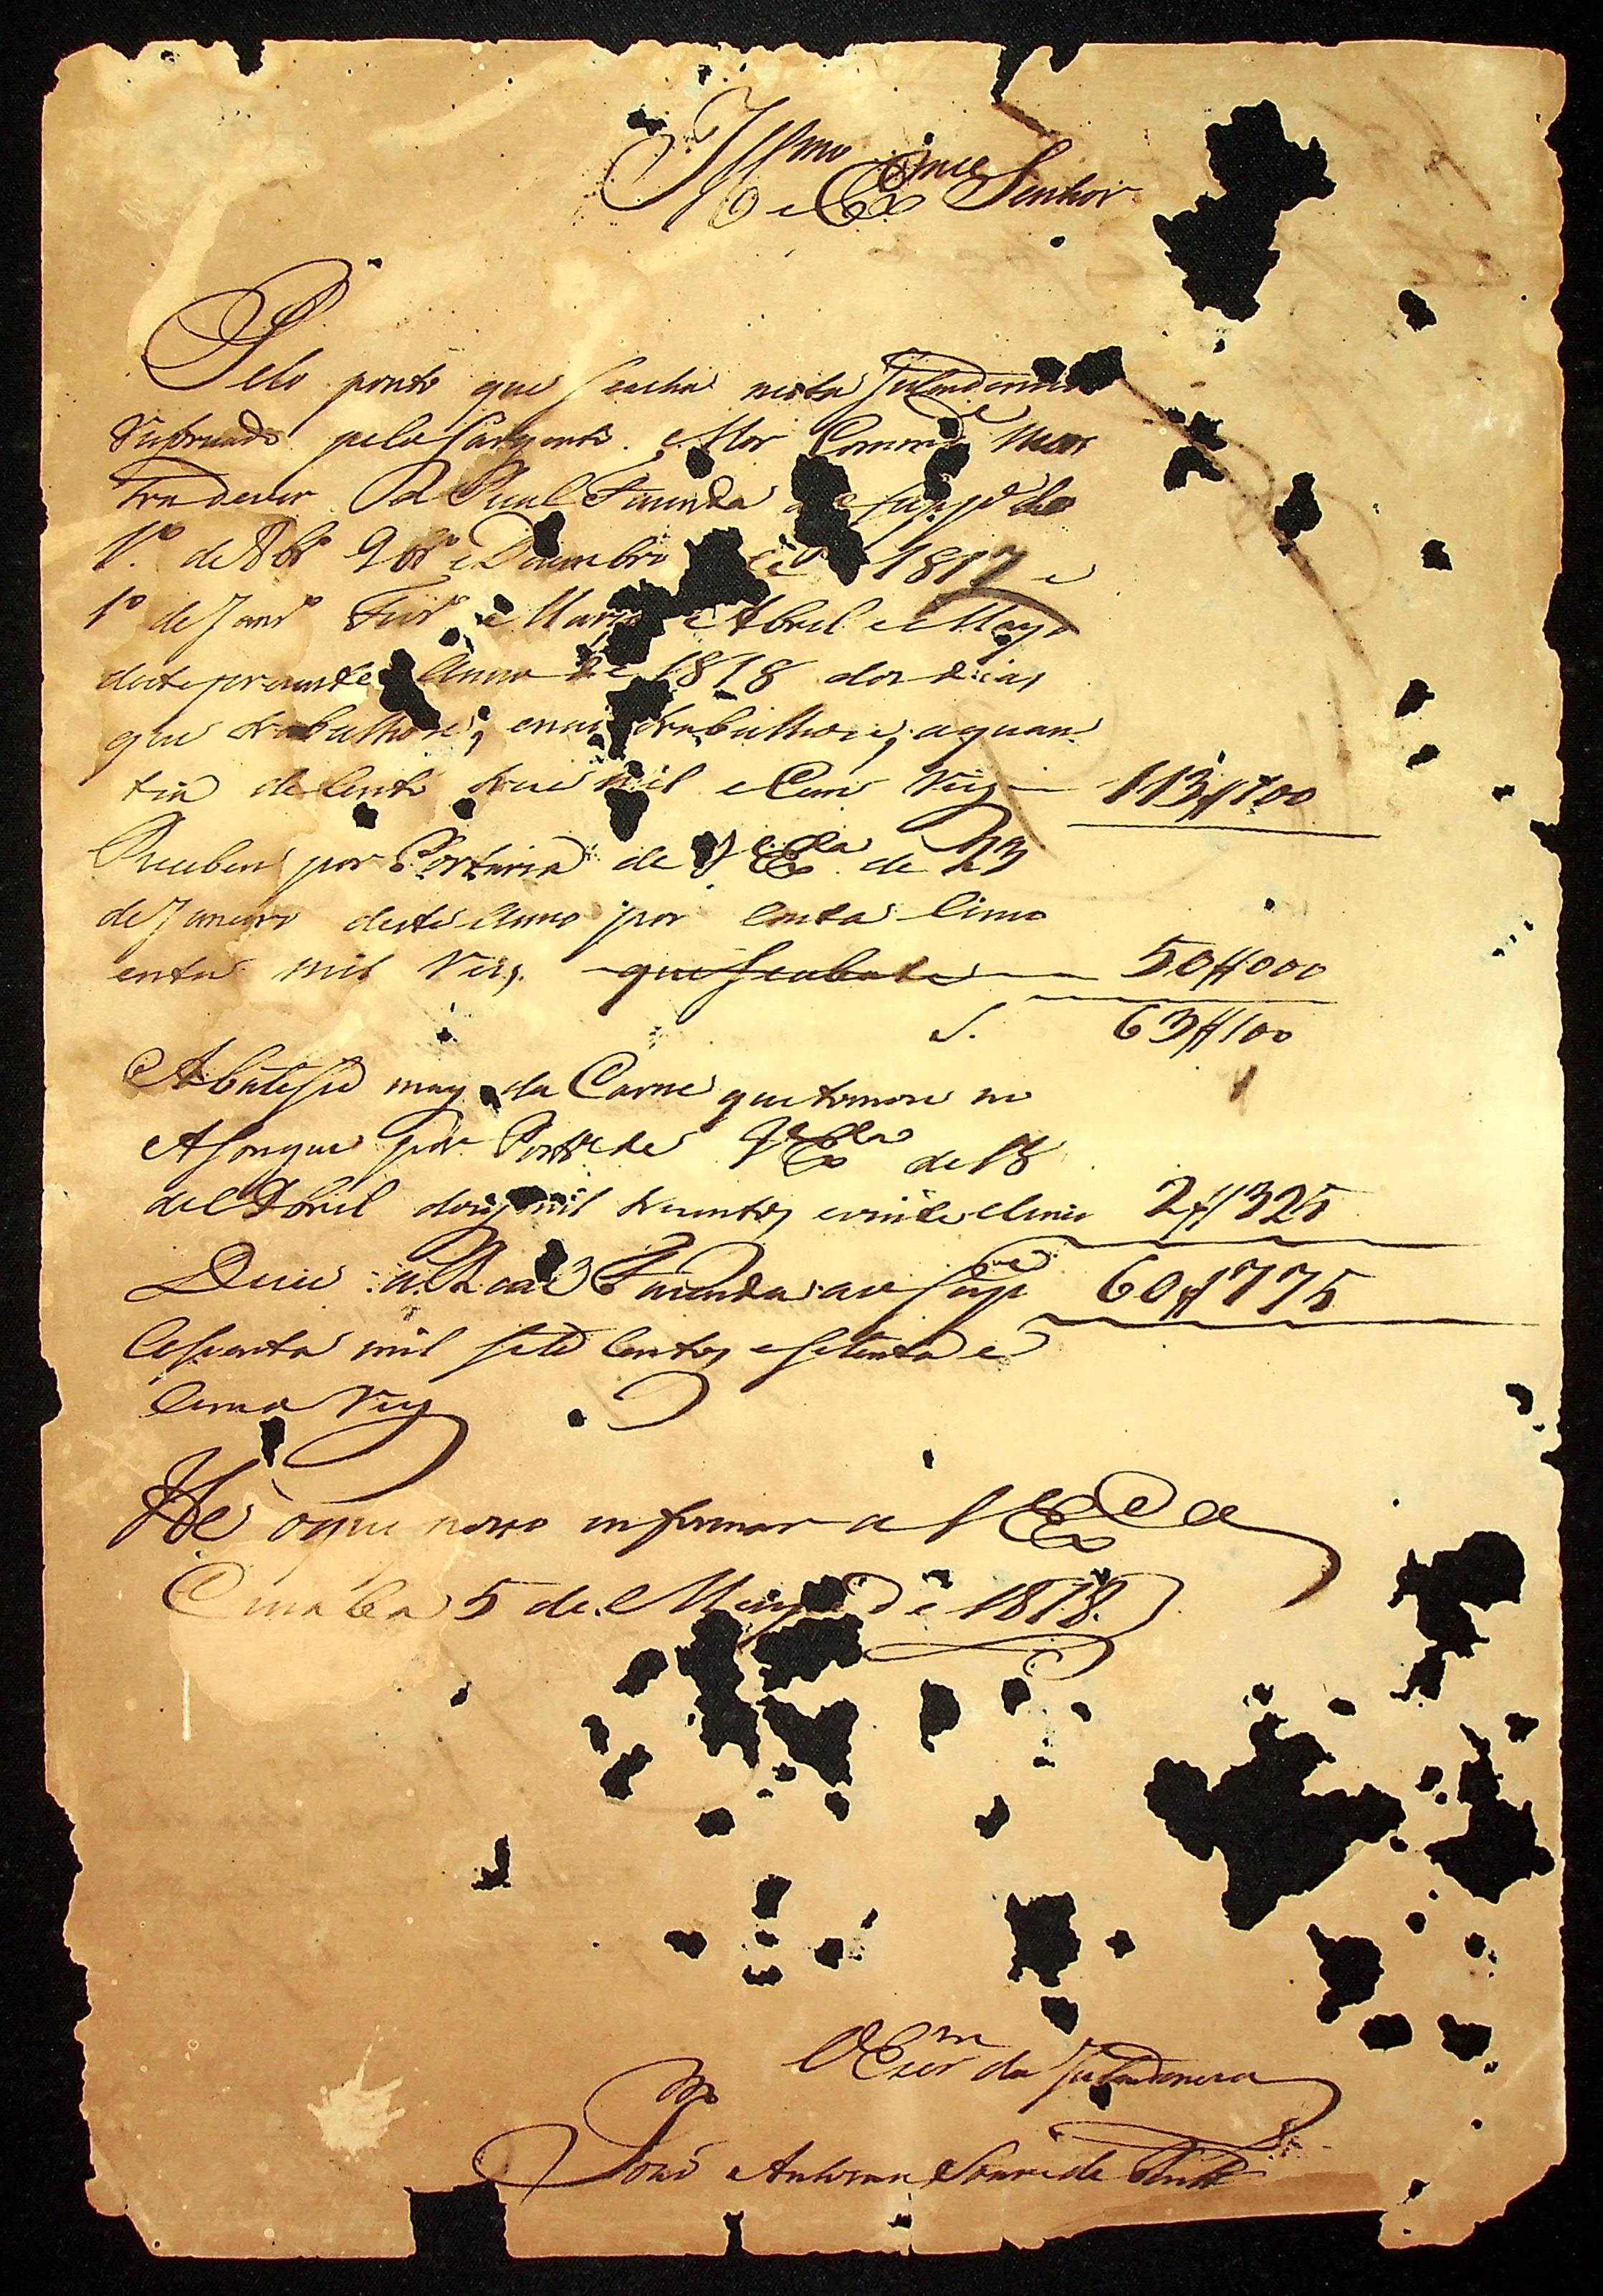 Illmo e Exmo Senhor
Pelo ponto que se acha nesta Intendencia
pelo Sargento Mor Commde mos
tra dever a Real Fazenda ao Suppe de
1º de 8bro 9bro e Dezembro de 1817 e
1º de Janro Fevro e Março e Abril e Mayo
deste prezente Anno de 1818 dos dias
que trabalhou, e nas trabalhou, a quan
tia de Cento treze mil e Cem reis 113$100
Recebeu por Portaria de V Exa de 23
de Janeiro deste Anno por Conta Cinco
enta mil reis. que se abate 50$000
S. 63$100
Abatese mays da Carne que tomou no
Asougue por Portra de V Exa de 18
de Abril dois mil trezentos e vinte e Cinco 2$325
Deve a Real Fazenda ao Suppe 60$775
Cesenta mil sete Centos e Setenta e
Cinco Reis
He o que poço informar a V Exa
Cuiaba 5 de Mayo de 1818.
O Escrm da Intendencia
José Antonio Soares de